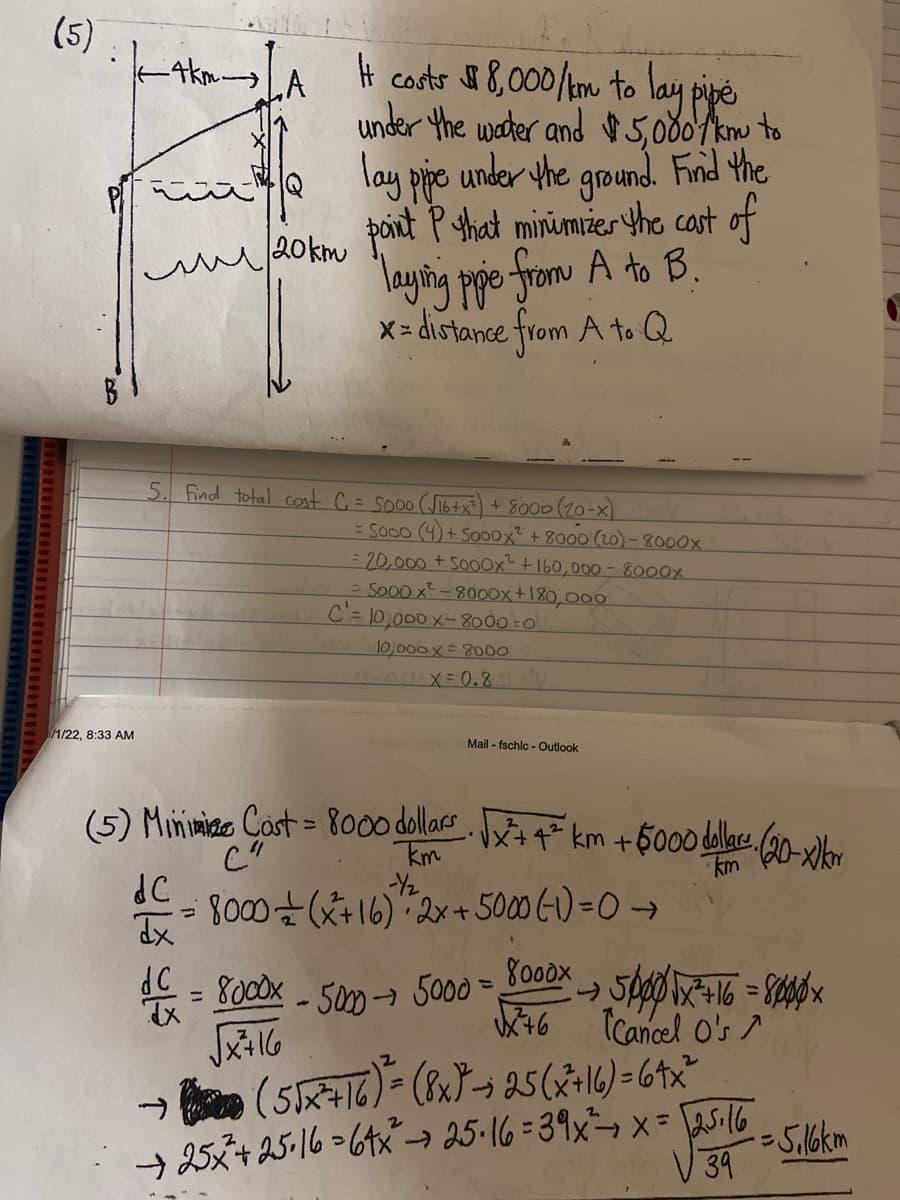 (5)
←4km→
A
X
P
Q
20km
B
It costs $8,000/km to lay pipe
under the water and $5,000/km to
lay pipe under the ground. Find the
point P that minimizes the cost of
laying pipe from A to B.
x = distance from A to Q
5. Find total cost C = 5000 (√16+x²) + 8000 (20-x)
= 5000 (4) + 5000x² + 8000 (20) - 8000x
= 20,000 + 5000x² + 160,000 - 8000x
= 5000x² - 8000x + 180,000
C' = 10,000x - 8000 = 0
10,000x = 8000
x = 0.8
/1/22, 8:33 AM
Mail - fschlc - Outlook
(5) Minimize Cost = 8000 dollars/km · √x²+4² km + 5000 dollars/km · (20-x)km
C"
dC/dx = 8000 ½ (x²+16)^-½ · 2x + 5000 (-1) = 0 →
dC/dx = 8000x/√x²+16 - 5000 → 5000 = 8000x/√x²+6 → 5000√x²+16 = 8000x
↑Cancel 0's ↗
→ (5√x²+16)² = (8x)² → 25(x²+16) = 64x²
→ 25x² + 25·16 = 64x² → 25·16 = 39x² → x = √25·16/39 = 5.16km